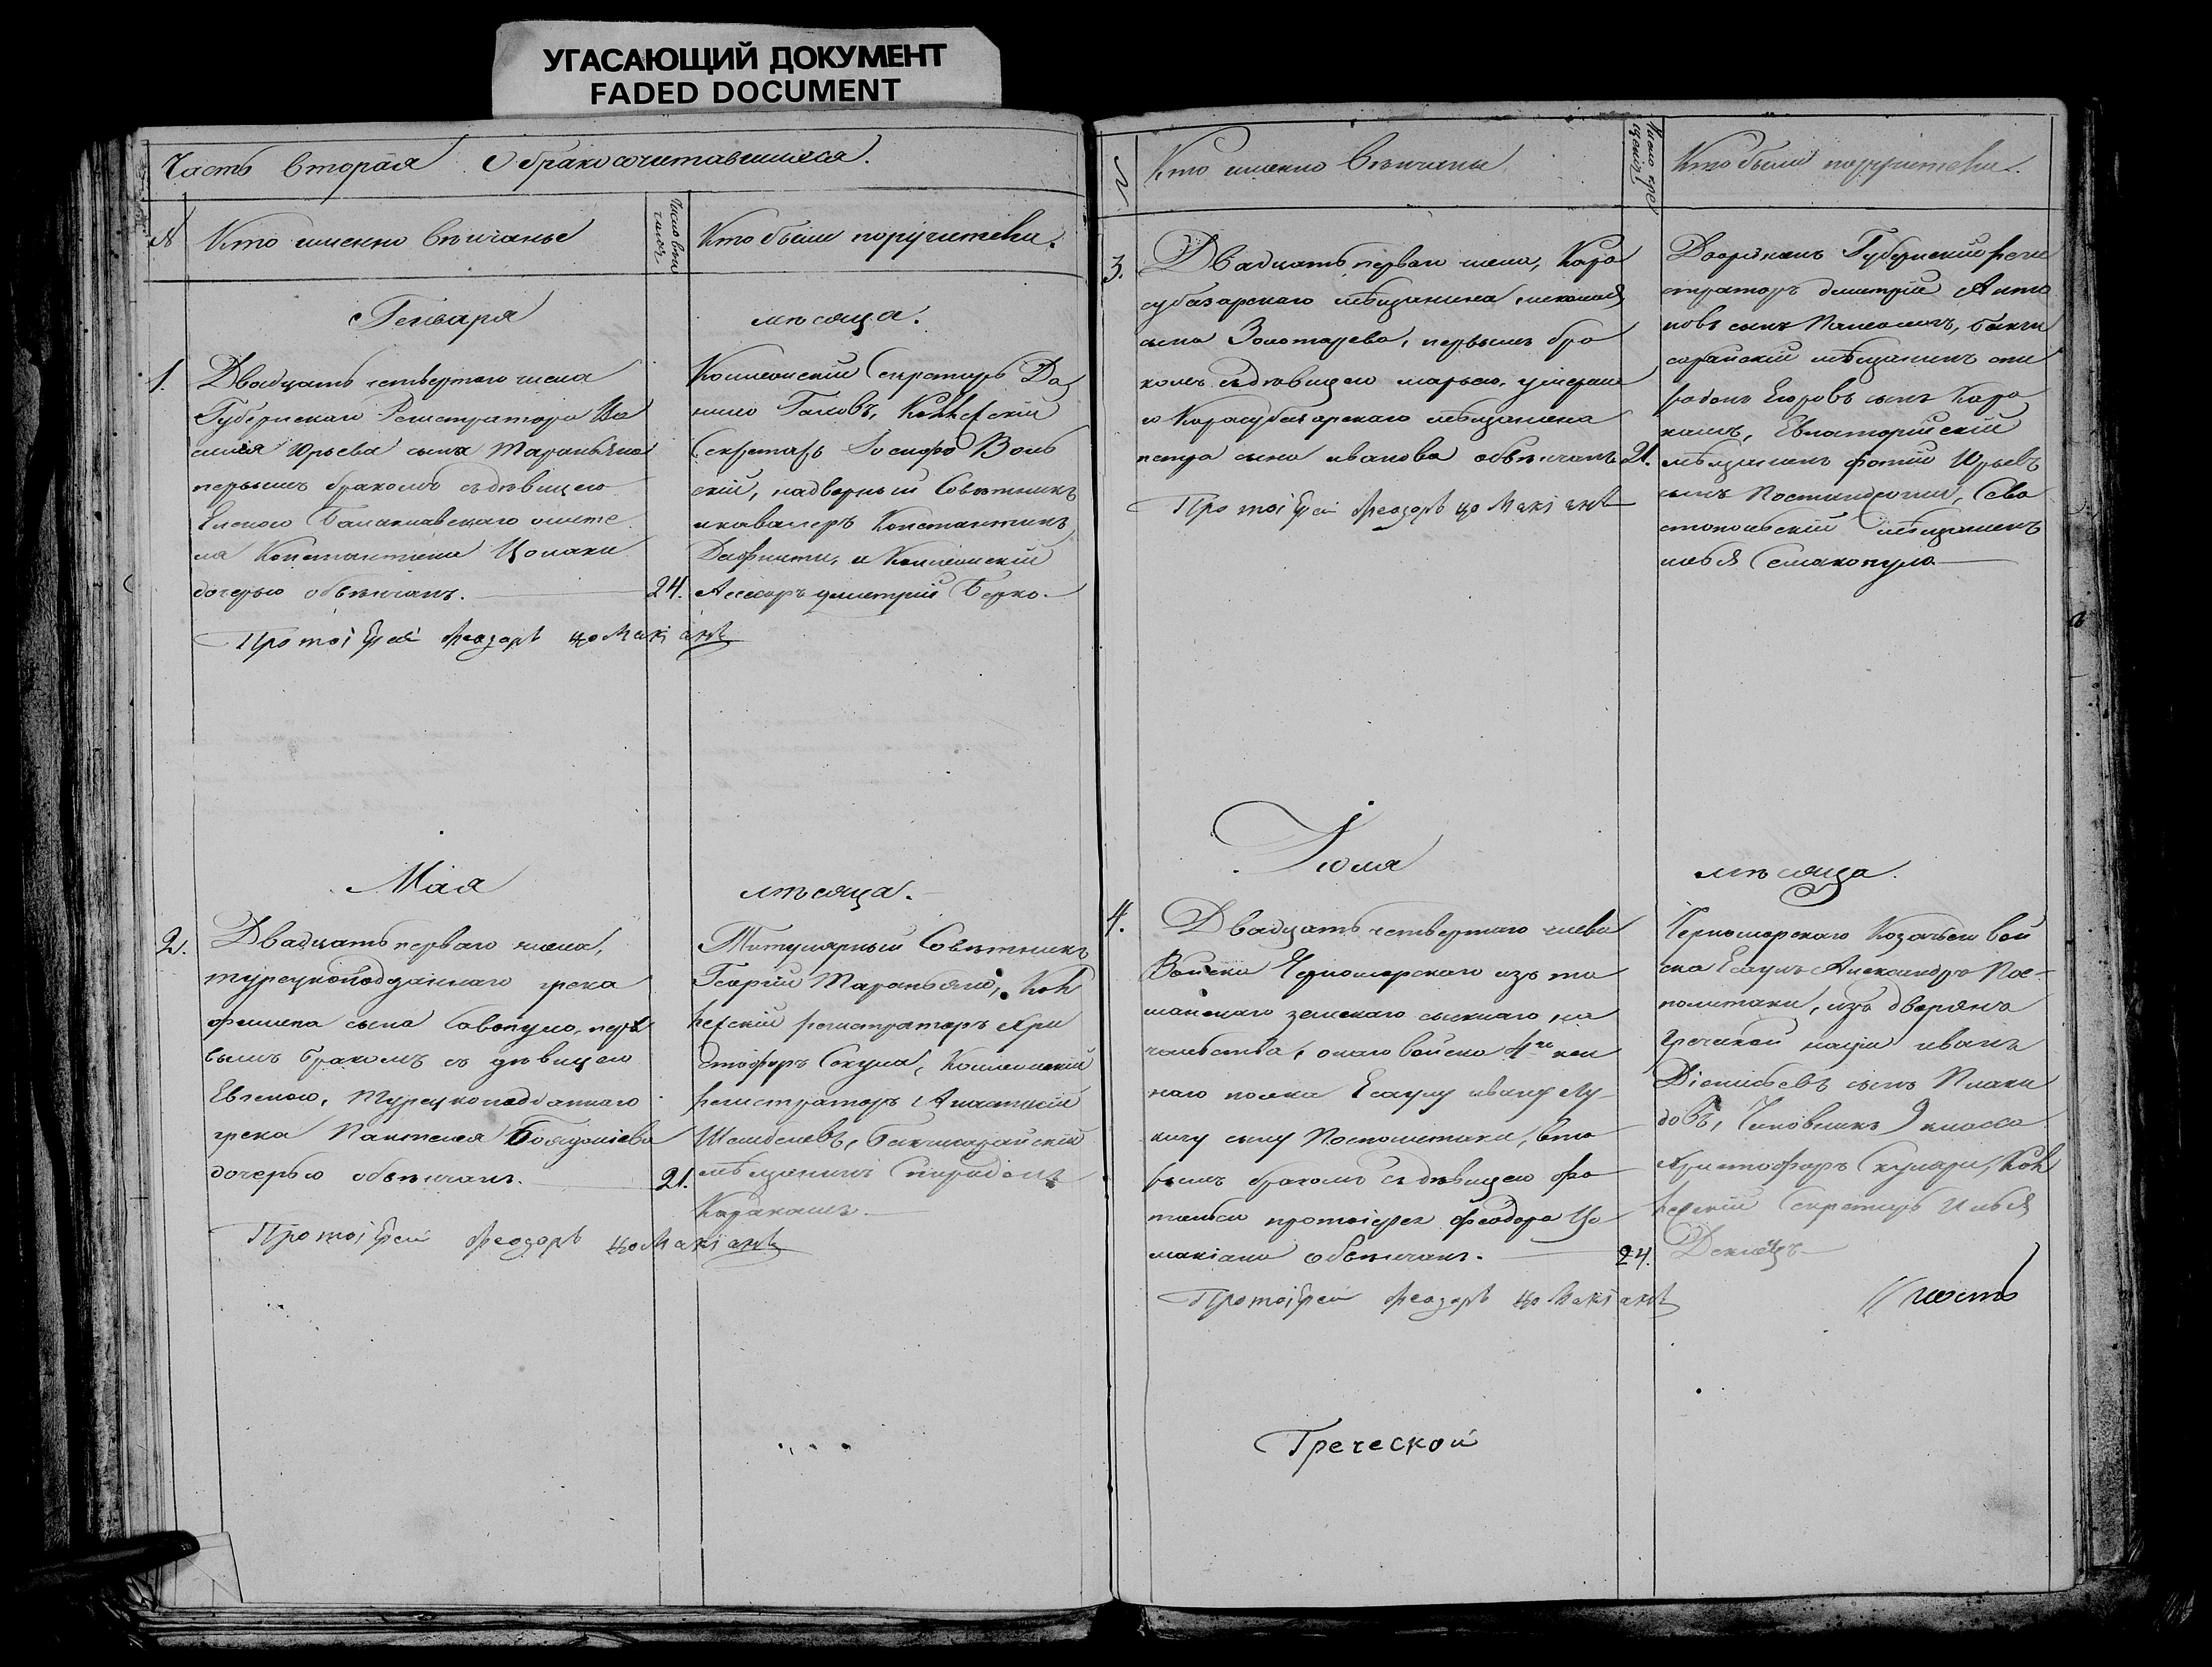 УГАСАЮЩИЙ ДОКУМЕНТ
FADED DOCUMENT
Часть вторая О бракосочитавшихся.
№ Кто именно вѣнчаны
Кто были поручители.
Генваря
мѣсяца.
1.
Двадцать четвертаго числа
Губернскаго Регистратора Ва
силія Юрьева сына
первымъ бракомъ съ дѣвицею
Еленою Балаклавскаго жите
ля Константина Цомаки
дочерью обвѣнчанъ.
24.
Коллежскій Секретарь Да
нило Коллежскій
Секретарь Іосифъ
скій, надворный Совѣтникъ
и кавалеръ Константинъ
и Коллежскій
Ассесоръ Дмитрий
Протоіерей Феодоръ Цомакіанъ
Мая
мѣсяца.
2.
Двадцать перваго числа,
турецкоподданнаго грека
филипа сына Савопуло, пер
вымъ бракомъ съ дѣвицею
Евгеною, Турецкоподданнаго
грека Пантелея
дочерью обвѣнчанъ.
21.
Титулярный Совѣтникъ
Георгій Кол
лежскій регистраторъ Хри
стофоръ Коллежскій
регистраторъ
Бахчисарайскій
мѣщанинъ Спиридонъ
Каракашъ.
Протоіерей Феодоръ Цомакіанъ
№ Кто именно вѣнчаны
Кто были поручители.
3.
Двадцать перваго числа, Кара
субазарскаго мѣщанина николая
сына Золотарева, первымъ бра
комъ съ дѣвицею марьею, умерша
го Карасубазарскаго мѣщанина
петра сына иванова обвѣнчанъ
21.
Дворянинъ Губернскій реги
страторъ дмитрій Анто
новъ сынъ бахчи
сарайскій мѣщанинъ спи
ридонъ Егоровъ сынъ Кара
кашъ, Евпаторійскій
мѣщанинъ фотій Юрьевъ
сынъ Сева
стопольскій мѣщанинъ
илья Семакопуло
Протоіерей Феодоръ Цомакіанъ
Іюля
мѣсяца.
4.
Двадцать четвертаго числа
Войска Черноморскаго изъ та
манскаго земскаго сыскнаго на
чальства, онаго войска 4го кон
наго полка Есаулу ивану Лу
кичу сыну Посполитаки, вто
рымъ бракомъ съ дѣвицею
протоіерея Феодора Цо
макіана обвѣнчанъ.
24.
Черноморскаго Козачьего вой
ска Есаулъ Александръ Пос-
политаки, изъ дворянъ
Греческой націи иванъ
Діонисьевъ сынъ
Чиновникъ 9 класса
Христофоръ Кол
лежскій Секретарь Илья
Протоіерей Феодоръ Цомакіанъ
часть
Греческой